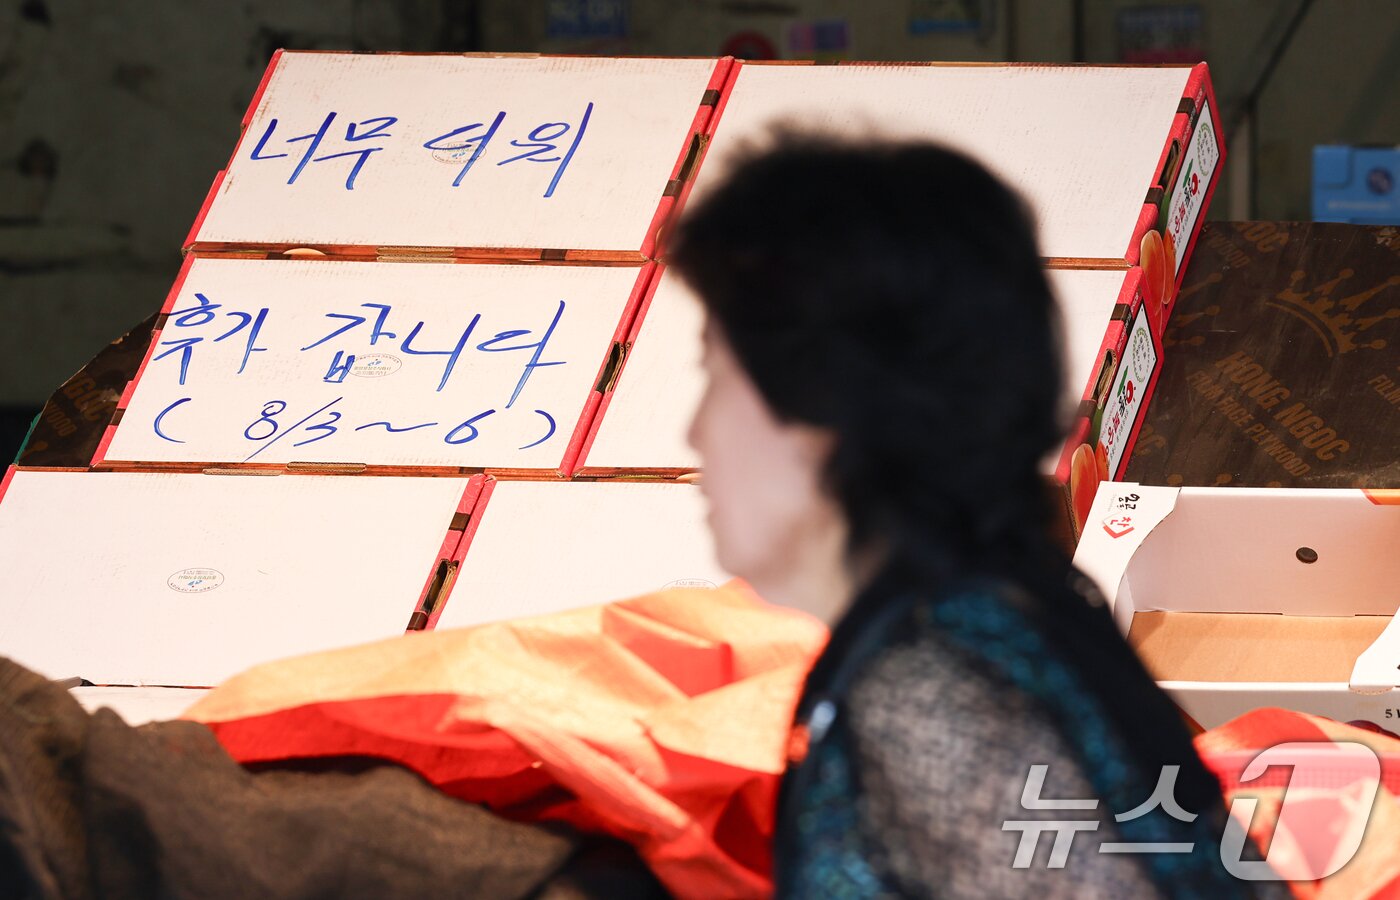 너무 더워
휴가 갑니다
( 8/3 ~ 6 )
KING NGOC
FILM FACE PLYWOOD
뉴스1